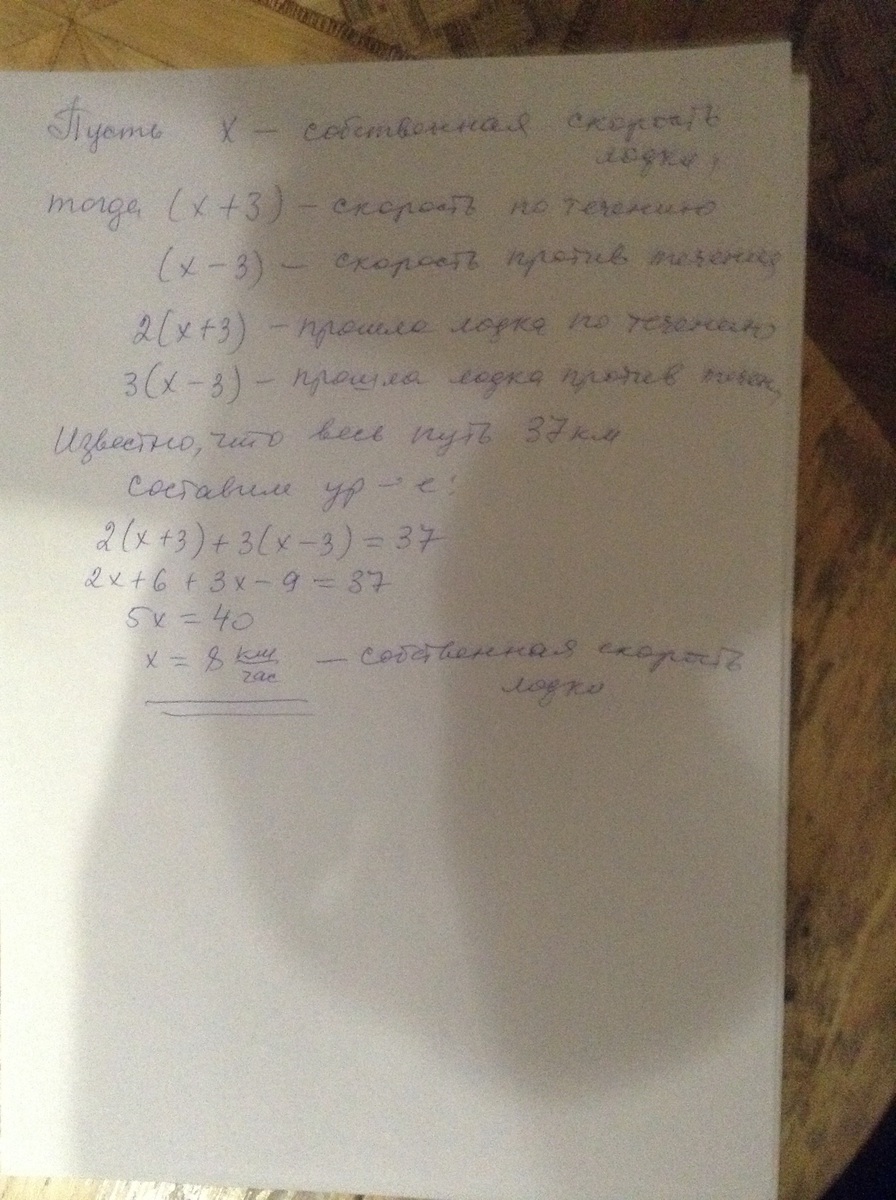 Пусть х – собственная скорость
лодки,
тогда (х+3) – скорость по течению
(х–3) – скорость против течения
2(х+3) – прошла лодка по течению
3(х–3) – прошла лодка против течен,
Известно, что весь путь 37км
Составим ур–е:
2(х+3)+3(х–3)=37
2х+6+3х–9=37
5х=40
х=8 км/час – собственная скорость
лодки